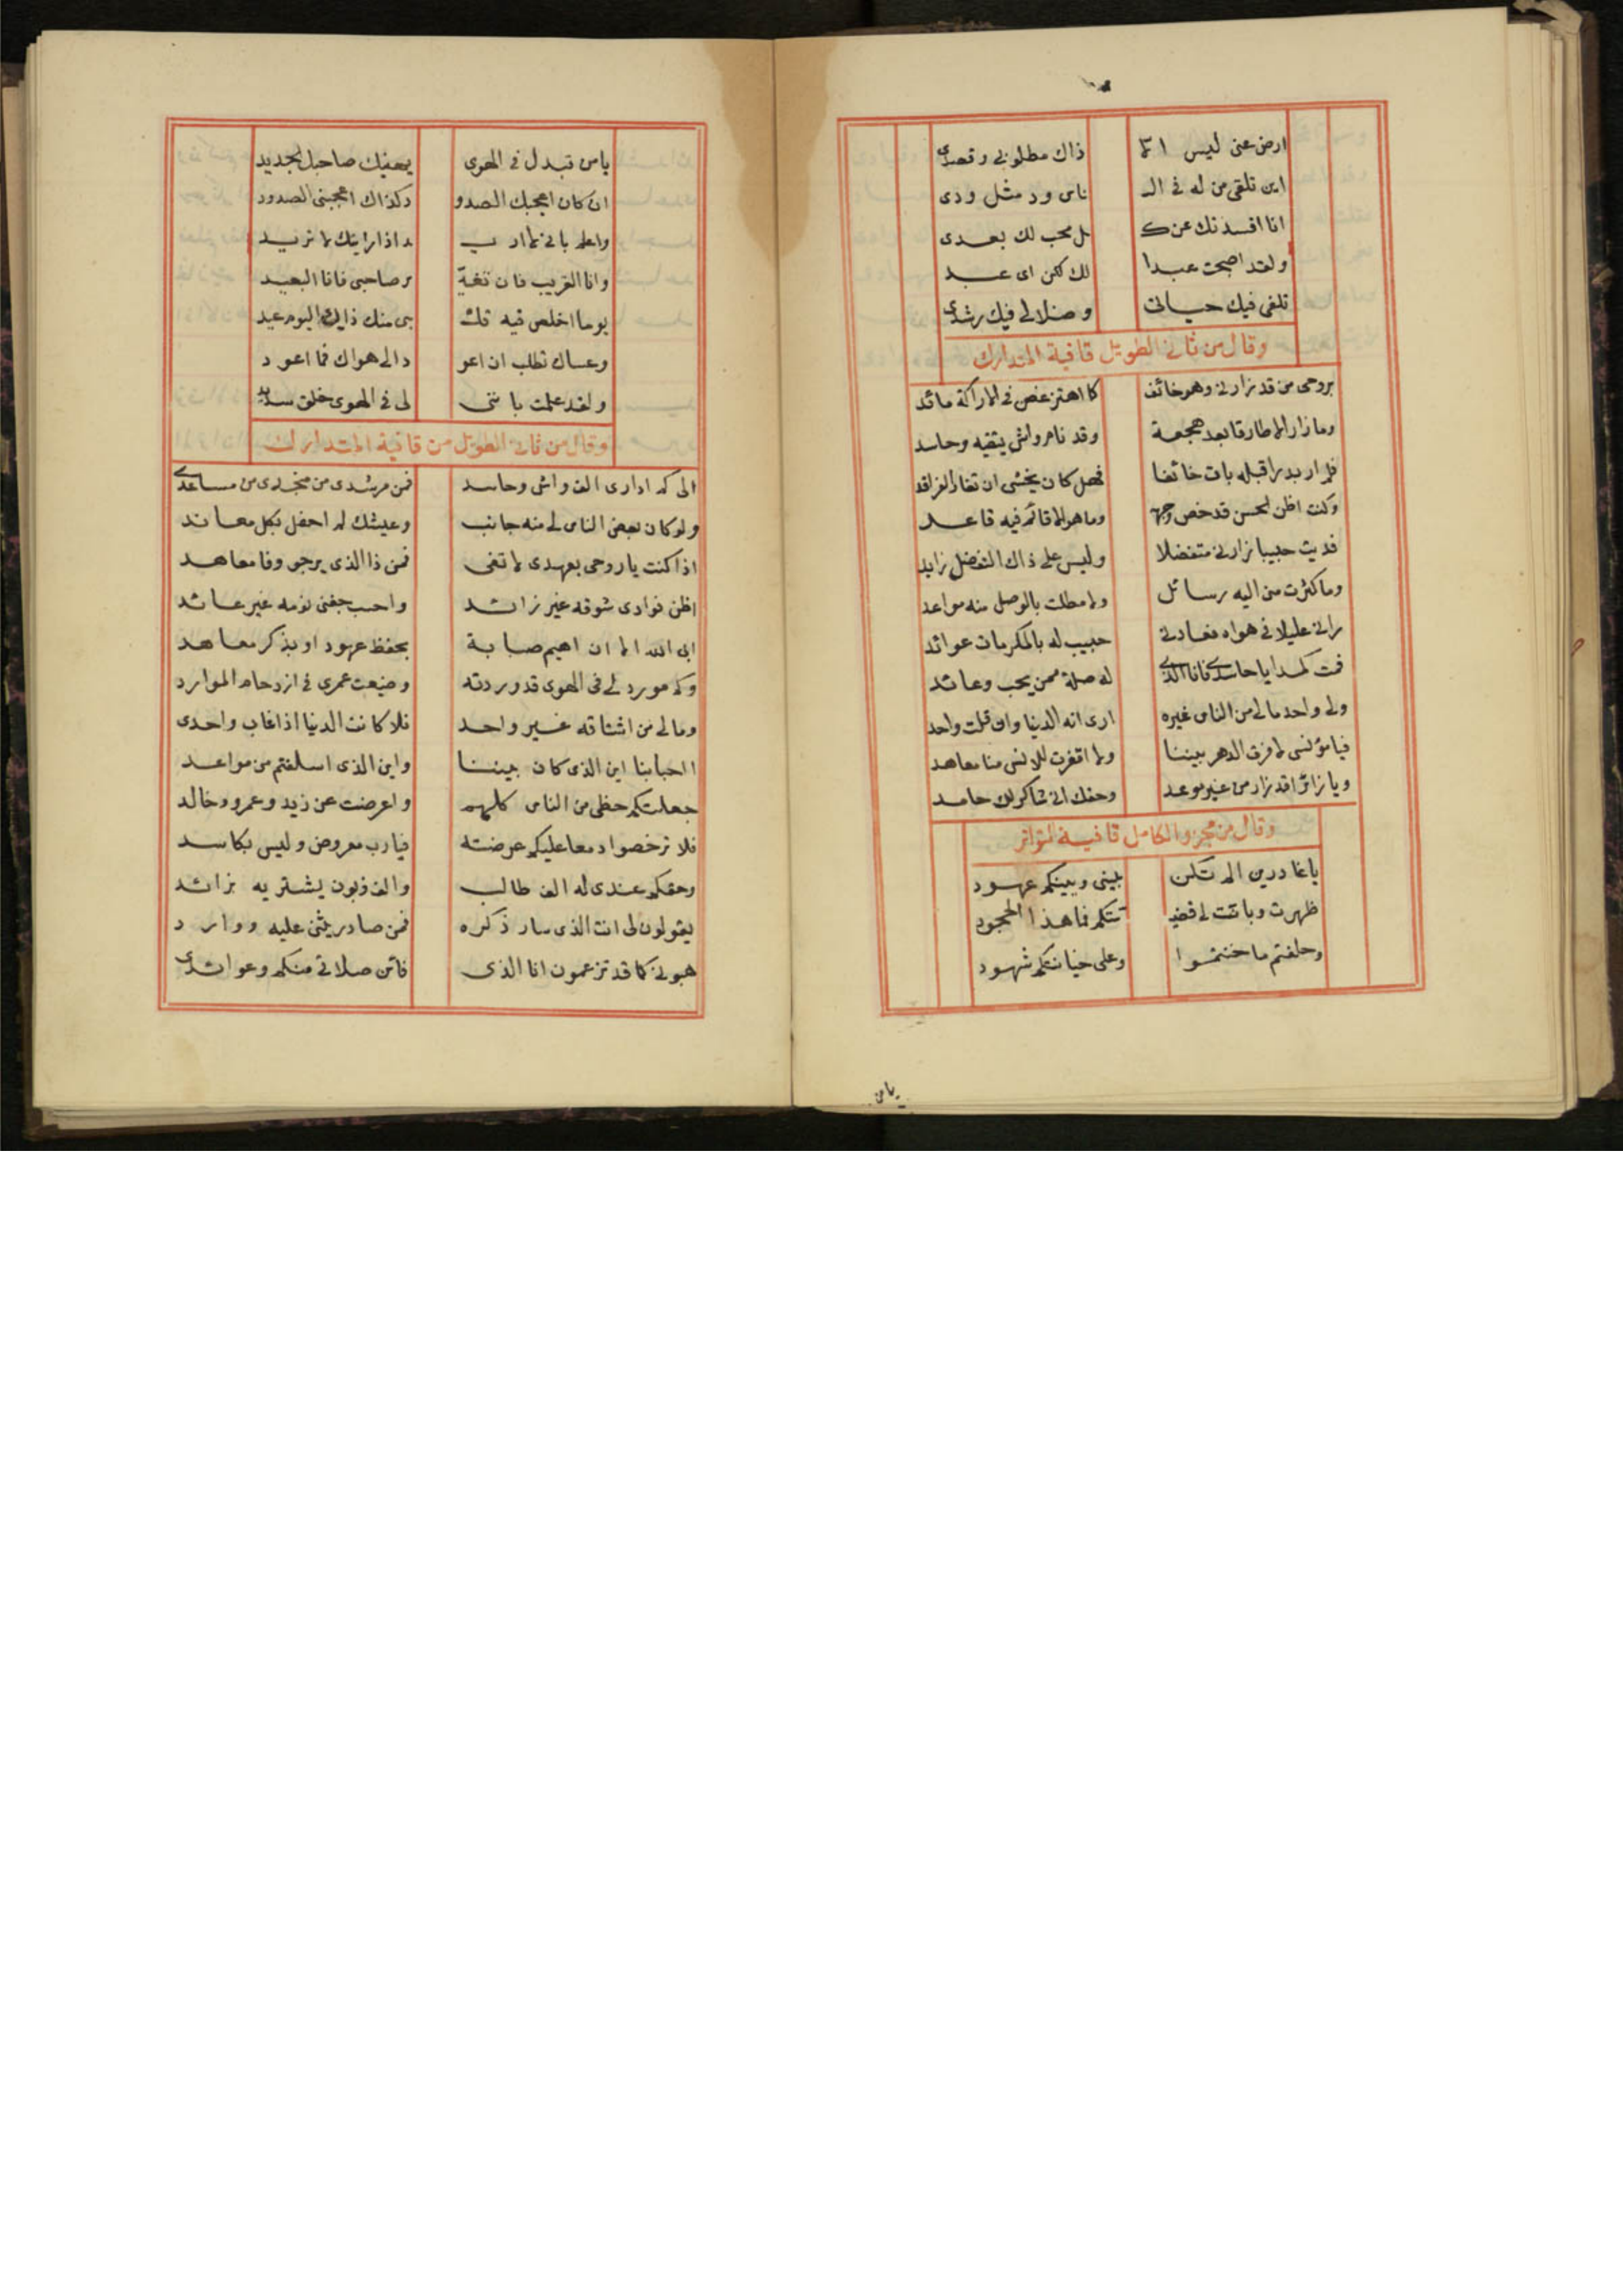 ارض عنى ليس الا ذاك مطلوبى وقصدى
اين تلقى من له فى الـ ناس ود مثل ودى
انا افسدتك عن كـ ل محب لك بعدى
ولقد اصبحت عبدا لك لكن اى عبد
تلفى فيك حياتى وضلالى فيك رشدى
وقال من ثانى الطويل قافية المتدارك
بروحى من قد زارنى وهو خائف كما اهتز غصن فى الاراكة مائد
وما زار الا طارقا بعد هجعة وقد نام واش يتقيه وحاسد
فلم ار بدرا قبله بات خائفا فهل كان يخشى ان تغار الفراقد
وكنت اظن الحسن قد خص وجهه وما هو الا قائم فيه قاعد
فديت حبيبا زارنى متفضلا وليس على ذاك التفضل زايد
وما كثرت منى اليه رسائل ولا مطلت بالوصل منه مواعد
رانى عليلا فى هواه فعادنى حبيب له بالمكرمات عوائد
فمت كمدا يا حاسدى فانا الذى له صلة ممن يحب وعائد
ولى واحد مالى من الناس غيره ارى انه الدنيا وان قلت واحد
فيا مؤنسى لا فرق الدهر بيننا ولا اقفرت للانس منا معاهد
ويا زائرا قد زار من غير موعد وحقك انى شاكر لك حامد
وقال من مجزو الكامل قافية المتواتر
يا غادرين الم تكن بينى وبينكم عهود
ظهرت وبانت لى قضيـ ـتكم فما هذا الجحود
وحلفتم ما خنتموا وعلى خيانتكم شهود
يا من
يا من تبدل فى الهوى يهنيك صاحبك الجديد
ان كان اعجبك الصدو د كذاك اعجبنى الصدود
واعلم بانى لا اريـ ـد اذا رايتك لا تريد
وانا القريب فان تغيـ ـر صاحبى فانا البعيد
يوما اخلص فيه قلـ ـبى منك ذاك اليوم عيد
وعساك تطلب ان اعو د الى هواك فما اعود
ولقد علمت باننى لى فى الهوى خلق سديد
وقال من ثانى الطويل من قافية المتدارك
الى كم ادارى الف واش وحاسد فمن مرشدى من منجدى من مساعدى
ولو كان بعض الناس لى منه جانب وعيشك لم احفل بكل معاند
اذا كنت يا روحى بعهدى لا تفى فمن ذا الذى يرجى وفا معاهد
اظن فوادى شوقه غير زائد واحسب جفنى نومه غير عائد
ابى الله الا ان اهيم صبابة بحفظ عهود او بذكر معاهد
وكم مورد لى فى الهوى قد وردته وضيعت عمرى فى ازدحام الموارد
ومالى من اشتاقه غير واحد فلا كانت الدنيا اذا غاب واحدى
ااحبابنا اين الذى كان بيننا واين الذى اسلفتم من مواعد
جعلتكم حظى من الناس كلهم واعرضت عن زيد وعمرو وخالد
فلا ترخصوا دمعا عليكم عرضته فيا رب معروض وليس بكاسد
وحقكم عندى له الف طالب والف زبون يشتريه بزائد
يقولون لى انت الذى سار ذكره فمن صادر يثنى عليه ووارد
هبونى كما قد تزعمون انا الذى فاين صلاتى منكم وعوائدى